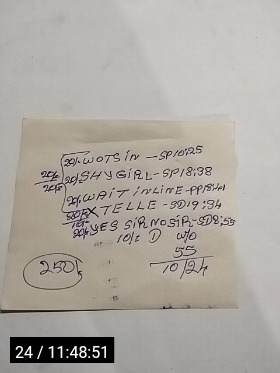 20/- WOTSIN - SP18:25
20/- SHYGIRL - SP18:38
20/- WAIT INLINE - PP18:41
TELLE - SD19:34
20/- YES SIR NO SIR - SD8:55
10/2 D W/D
55
250/- 10/24
24 / 11:48:51